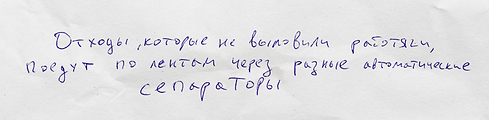 Отходы, которые не выловили работяги,
поедут по лентам через разные автоматические
сепараторы